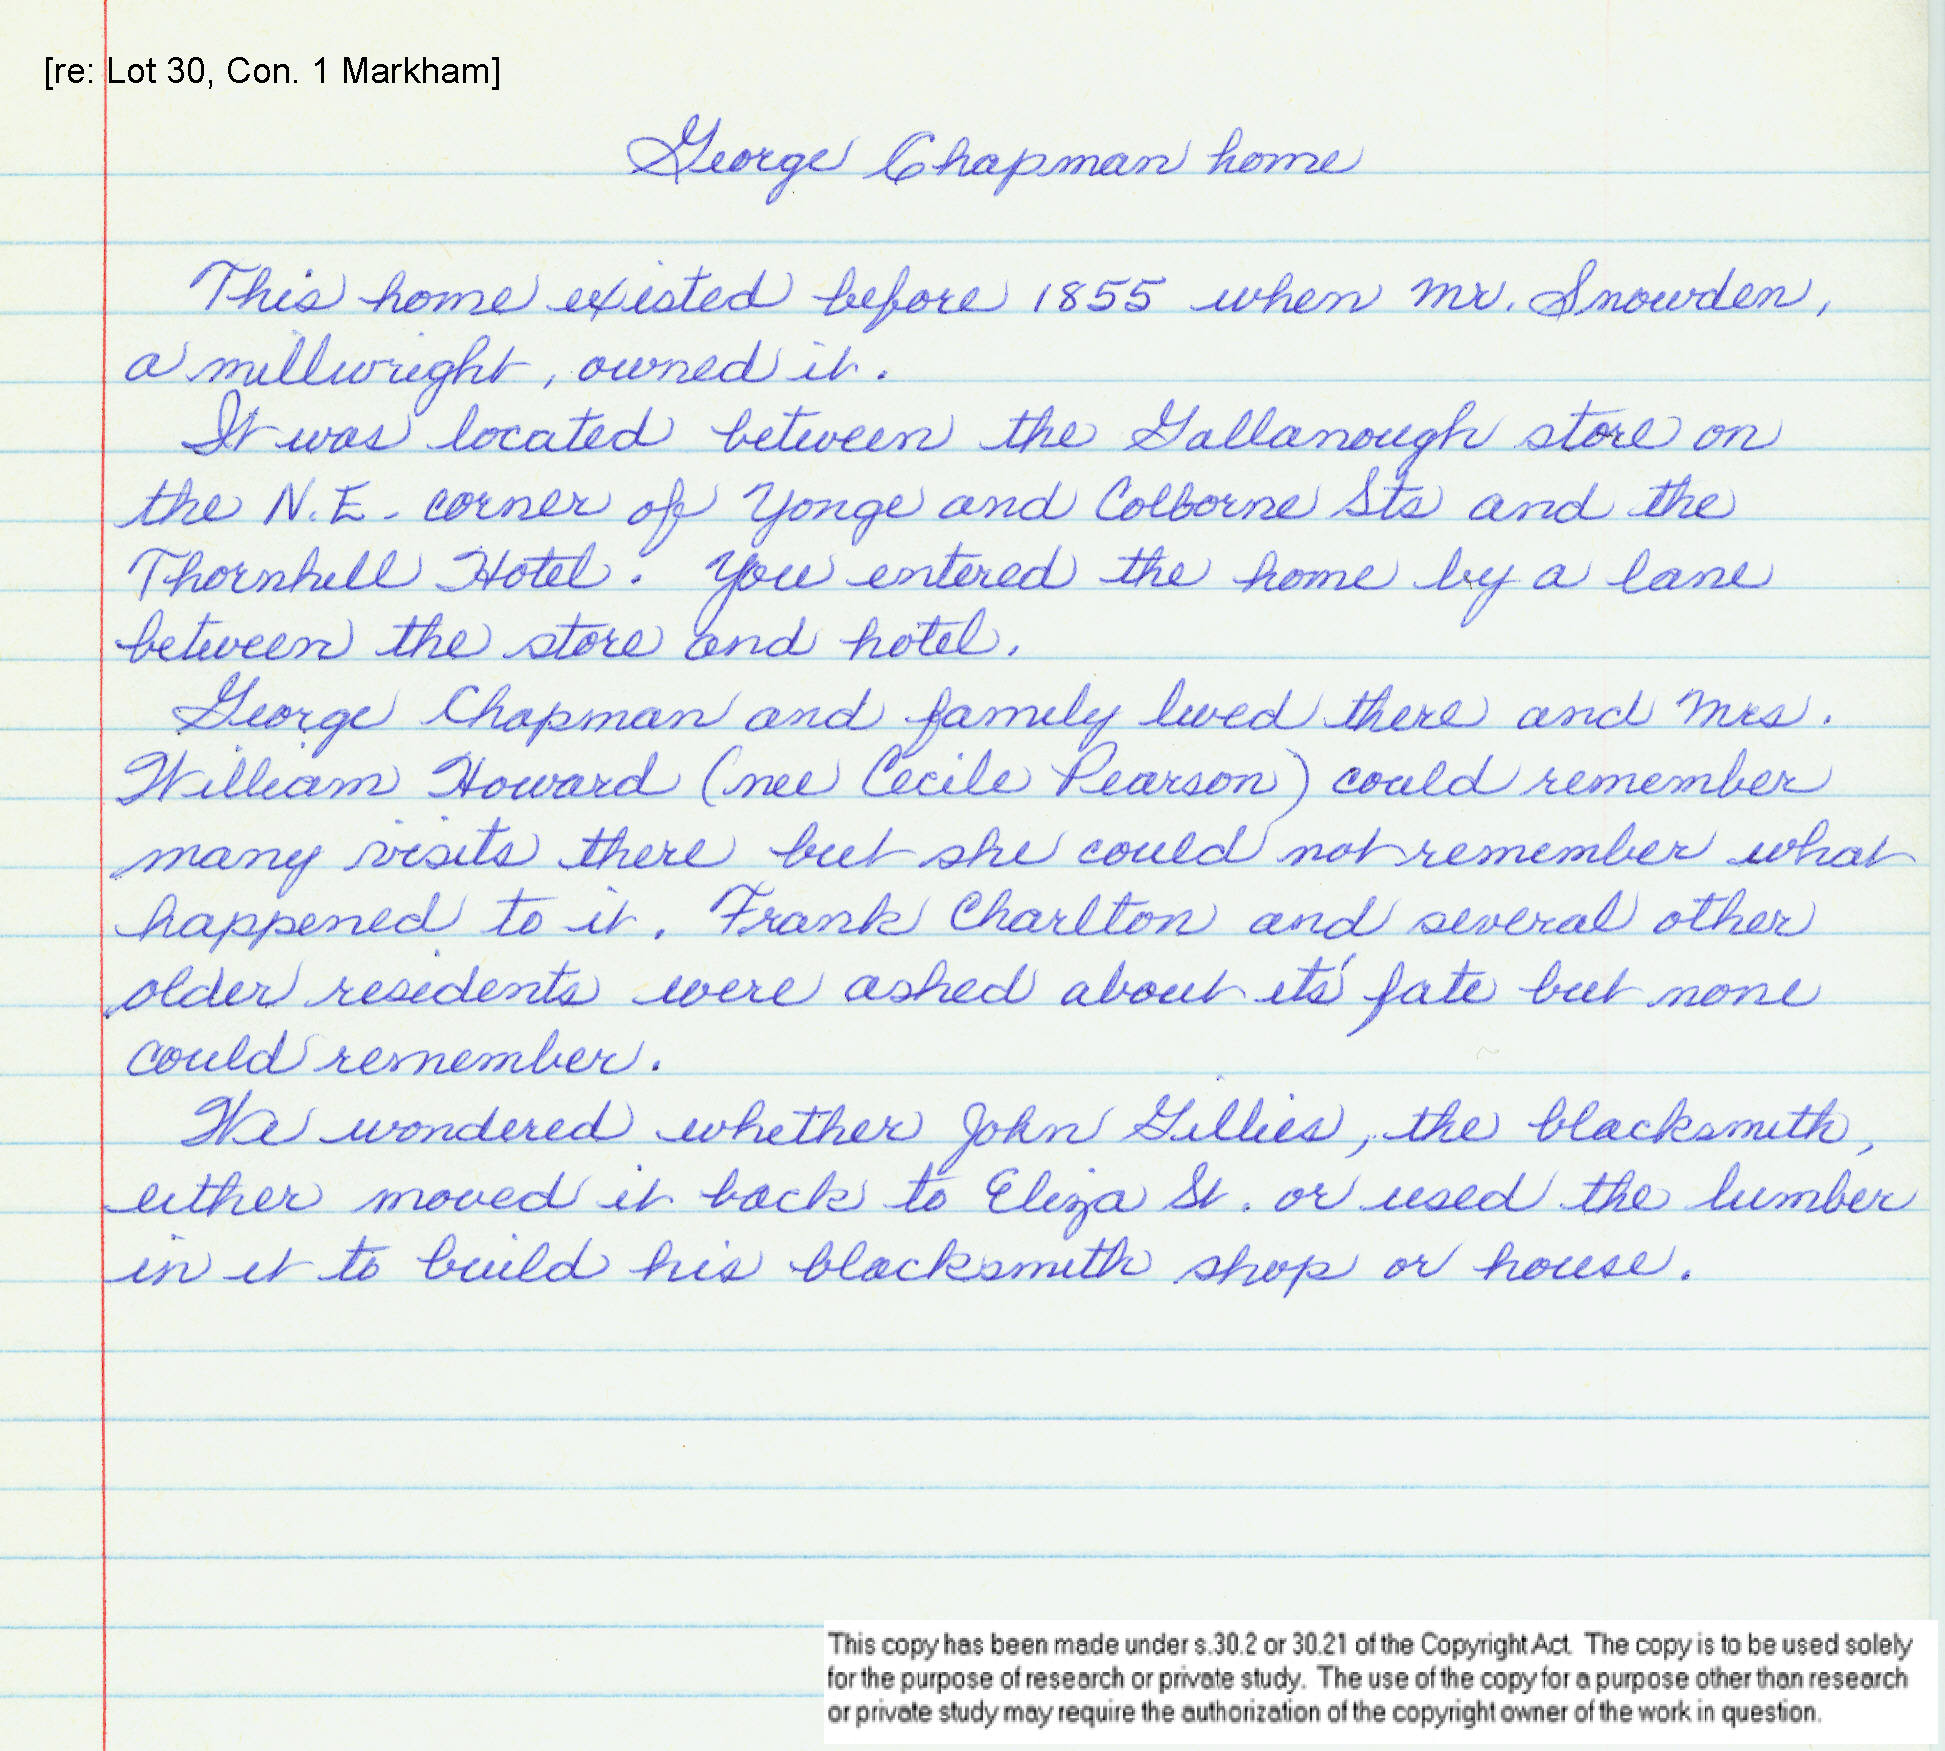 [re: Lot 30, Con. 1 Markham]
George Chapman home
This home existed before 1855 when Mr. Snowden,
a millwright, owned it.
It was located between the Gallanough store on
the N.E. corner of Yonge and Colborne Sts and the
Thornhill Hotel. You entered the home by a lane
between the store and hotel.
George Chapman and family lived there and Mrs.
William Howard (nee Cecile Pearson) could remember
many visits there but she could not remember what
happened to it. Frank Charlton and several other
older residents were asked about its' fate but none
could remember.
We wondered whether John Gillies, the blacksmith,
either moved it back to Eliza St. or used the lumber
in it to build his blacksmith shop or house.
This copy has been made under s.30.2 or 30.21 of the Copyright Act. The copy is to be used solely
for the purpose of research or private study. The use of the copy for a purpose other than research
or private study may require the authorization of the copyright owner of the work in question.